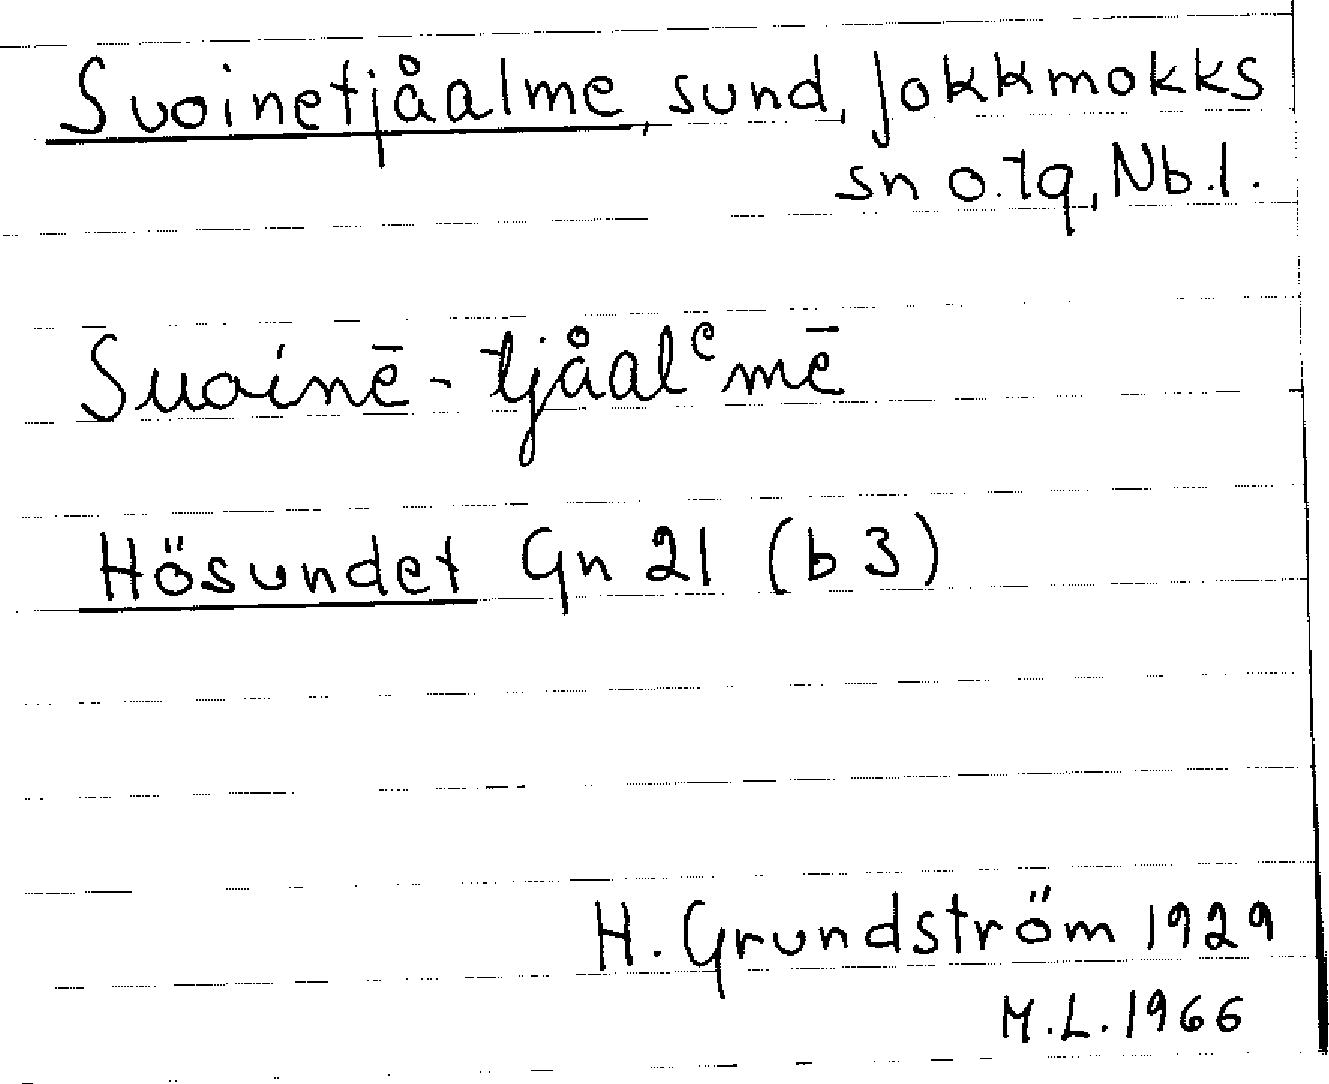 Suoinetjåalme, sund, Jokkmokks
sn o. tg, Nb. l.
Suoinē-tjåalᵉmē
Hösundet Gn 21 (b 3)
H. Grundström 1929
M.L. 1966